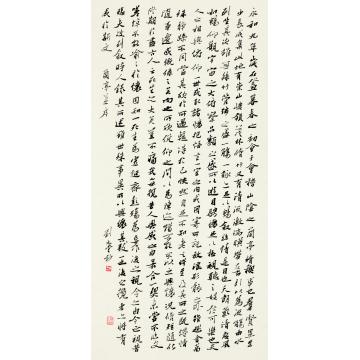 永和九年歲在癸丑暮春之初會于會稽山陰之蘭亭脩禊事也群賢畢至
少長咸集此地有崇山峻領茂林脩竹又有清流激湍映帶左右引以為流觴曲水
列坐其次雖無絲竹管弦之盛一觴一詠亦足以暢敘幽情是日也天朗氣清惠風
和暢仰觀宇宙之大俯察品類之盛所以遊目騁懷足以極視聽之娛信可樂也夫
人之相與俯仰一世或取諸懷抱悟言一室之內或因寄所託放浪形骸之外雖趣舍萬
殊靜躁不同當其欣於所遇暫得於己快然自足不知老之將至及其所之既倦情
隨事遷感慨係之矣向之所欣俛仰之間以為陳迹猶不能不以之興懷況脩短隨化
終期於盡古人云死生亦大矣豈不痛哉每攬昔人興感之由若合一契未嘗不臨文
嗟悼不能喻之於懷固知一死生為虛誕齊彭殤為妄作後之視今亦由今之視昔
悲夫故列敘時人錄其所述雖世殊事異所以興懷其致一也後之攬者亦將有
感於斯文 蘭亭集序